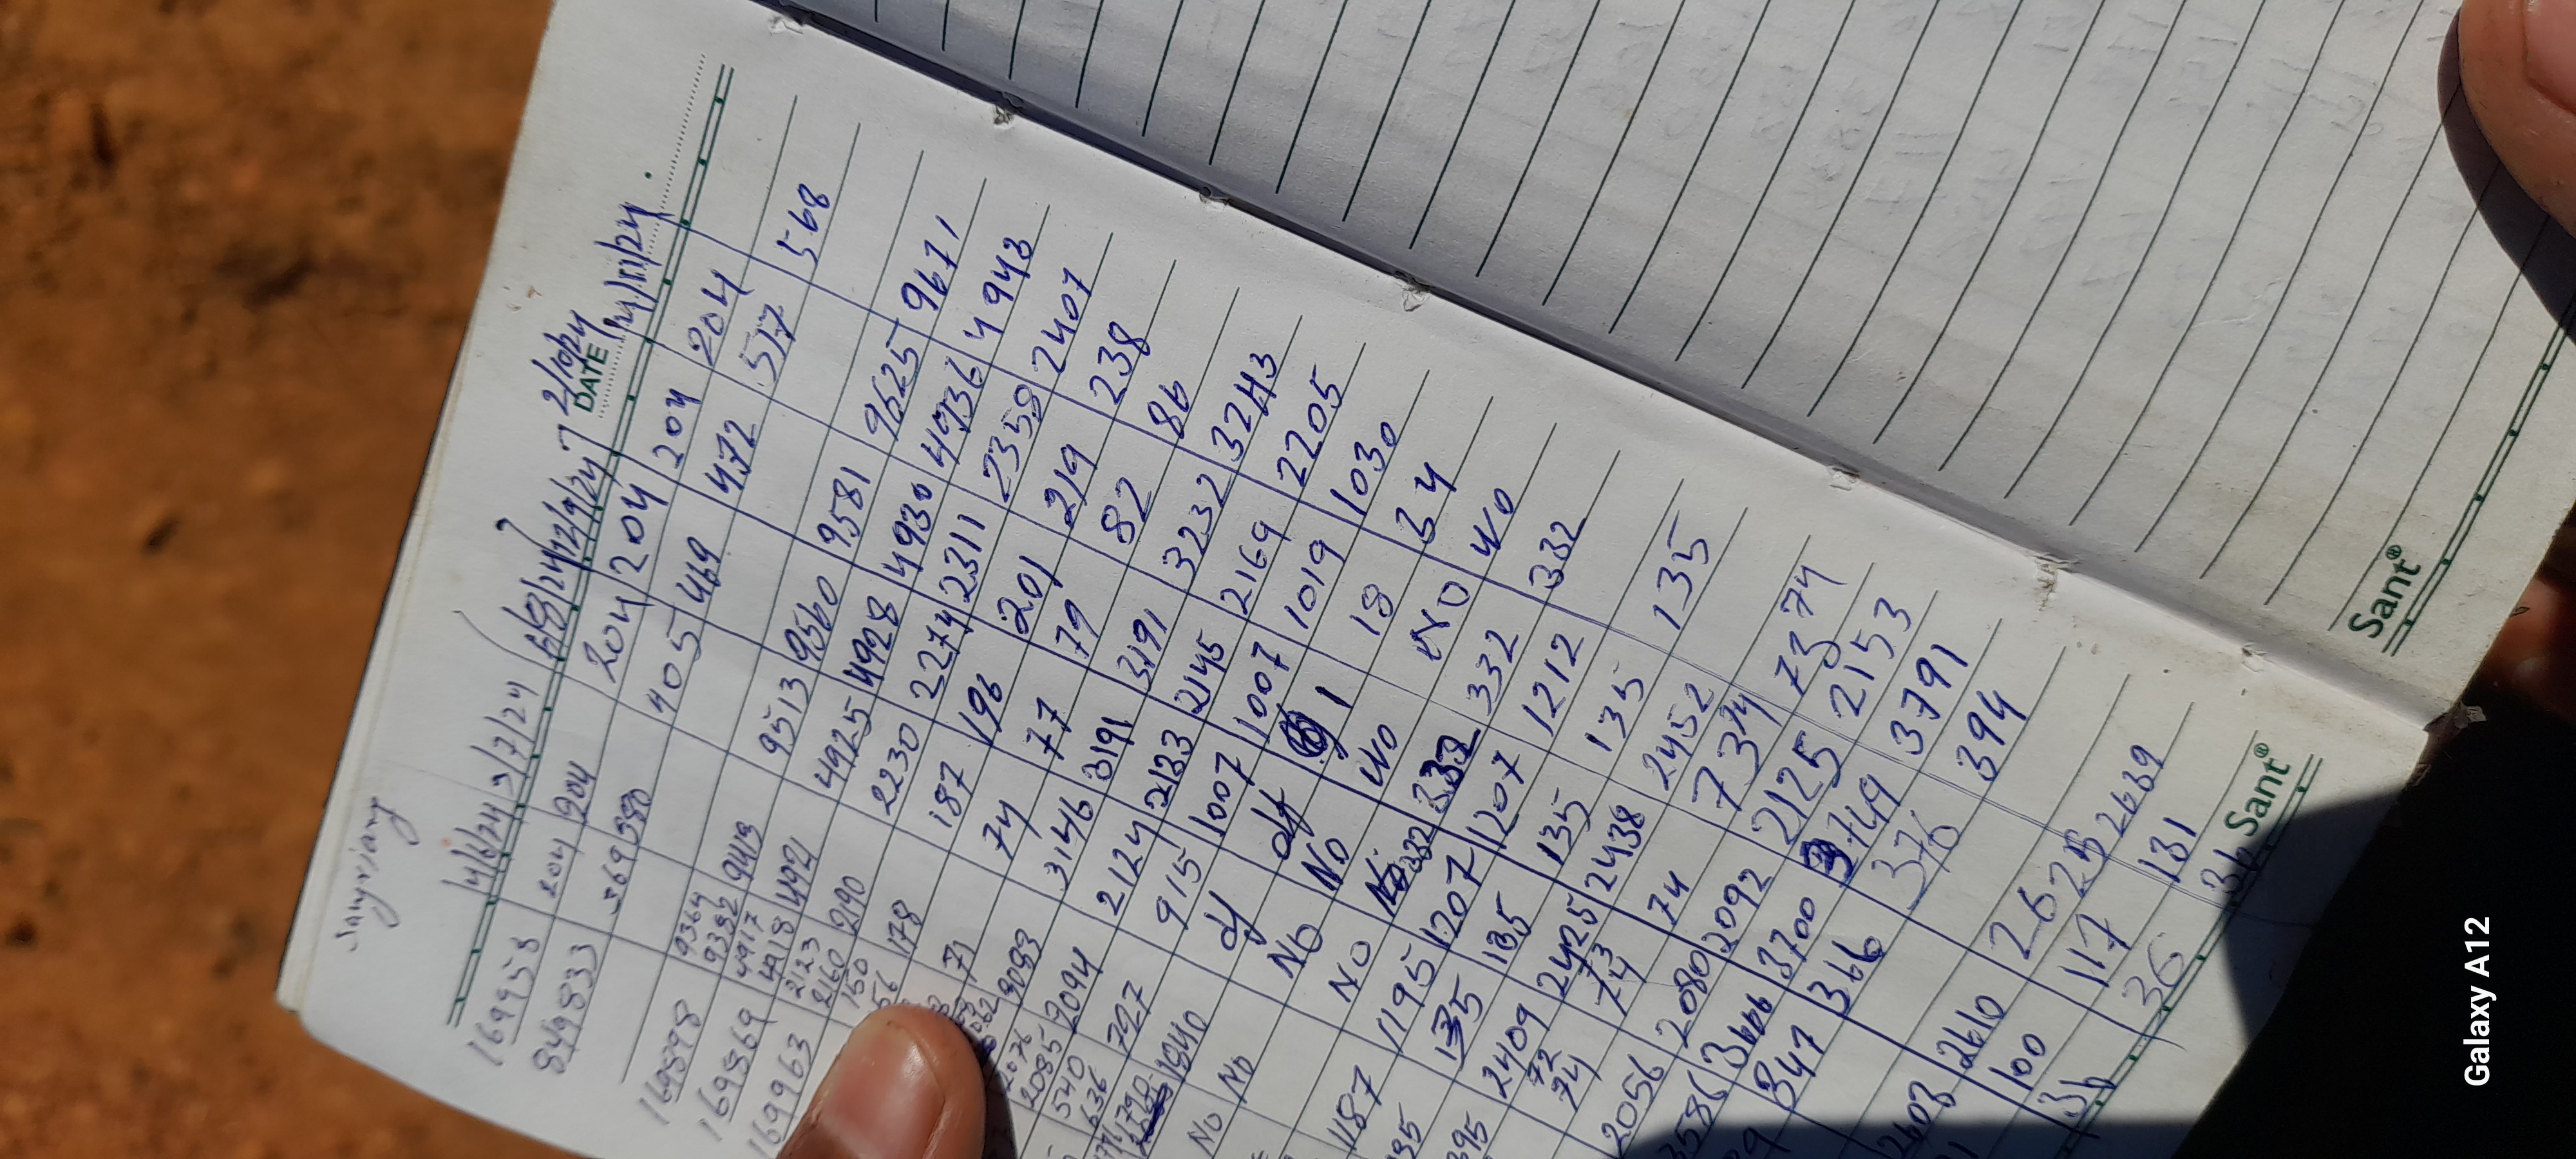 Sanyriang
4/6/24 3/7/24 6/8/24 12/9/24 2/10/24 14/11/24
DATE
169958 204 204 204 204 204 204
849833 369 380 405 469 472 517 568
169898 9364 9382 9413 9513 9560 9581 9625 9671
169869 4917 4918 4921 4925 4928 4930 4936 4943
169963 2123 2160 2190 2230 2274 2311 2358 2407
150 56 178 187 196 201 219 238
71 74 77 79 82 86
3062 3093 3146 3191 3191 3232 3243
2076 2085 2094 2124 2133 2145 2169 2205
540 636 797 915 1007 1007 1019 1030
1790 1840 df df 1 18 34
No No No No No No No
No 332 332 332 332
1187 1195 1207 1207 1212
35 135 135 135 135 135
395 2409 2425 2438 2452
72 74 73 74 74 73 74 73 74
2056 2080 2092 2125 2153
3586 3666 3700 3749 3791
347 366 376 394
2603 2610 2625 2639
100 117 131
36 36 36
Sant®
Sant®
Galaxy A12